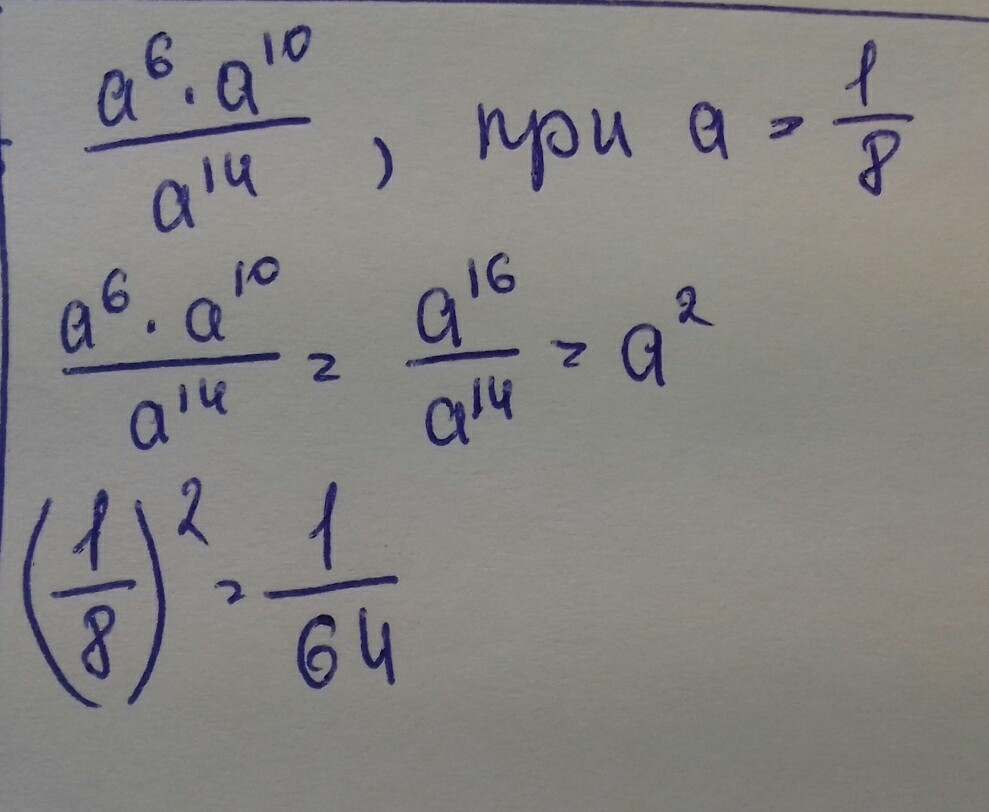 a⁶ · a¹⁰ / a¹⁴ , при a = 1/8
a⁶ · a¹⁰ / a¹⁴ = a¹⁶ / a¹⁴ = a²
(1/8)² = 1/64